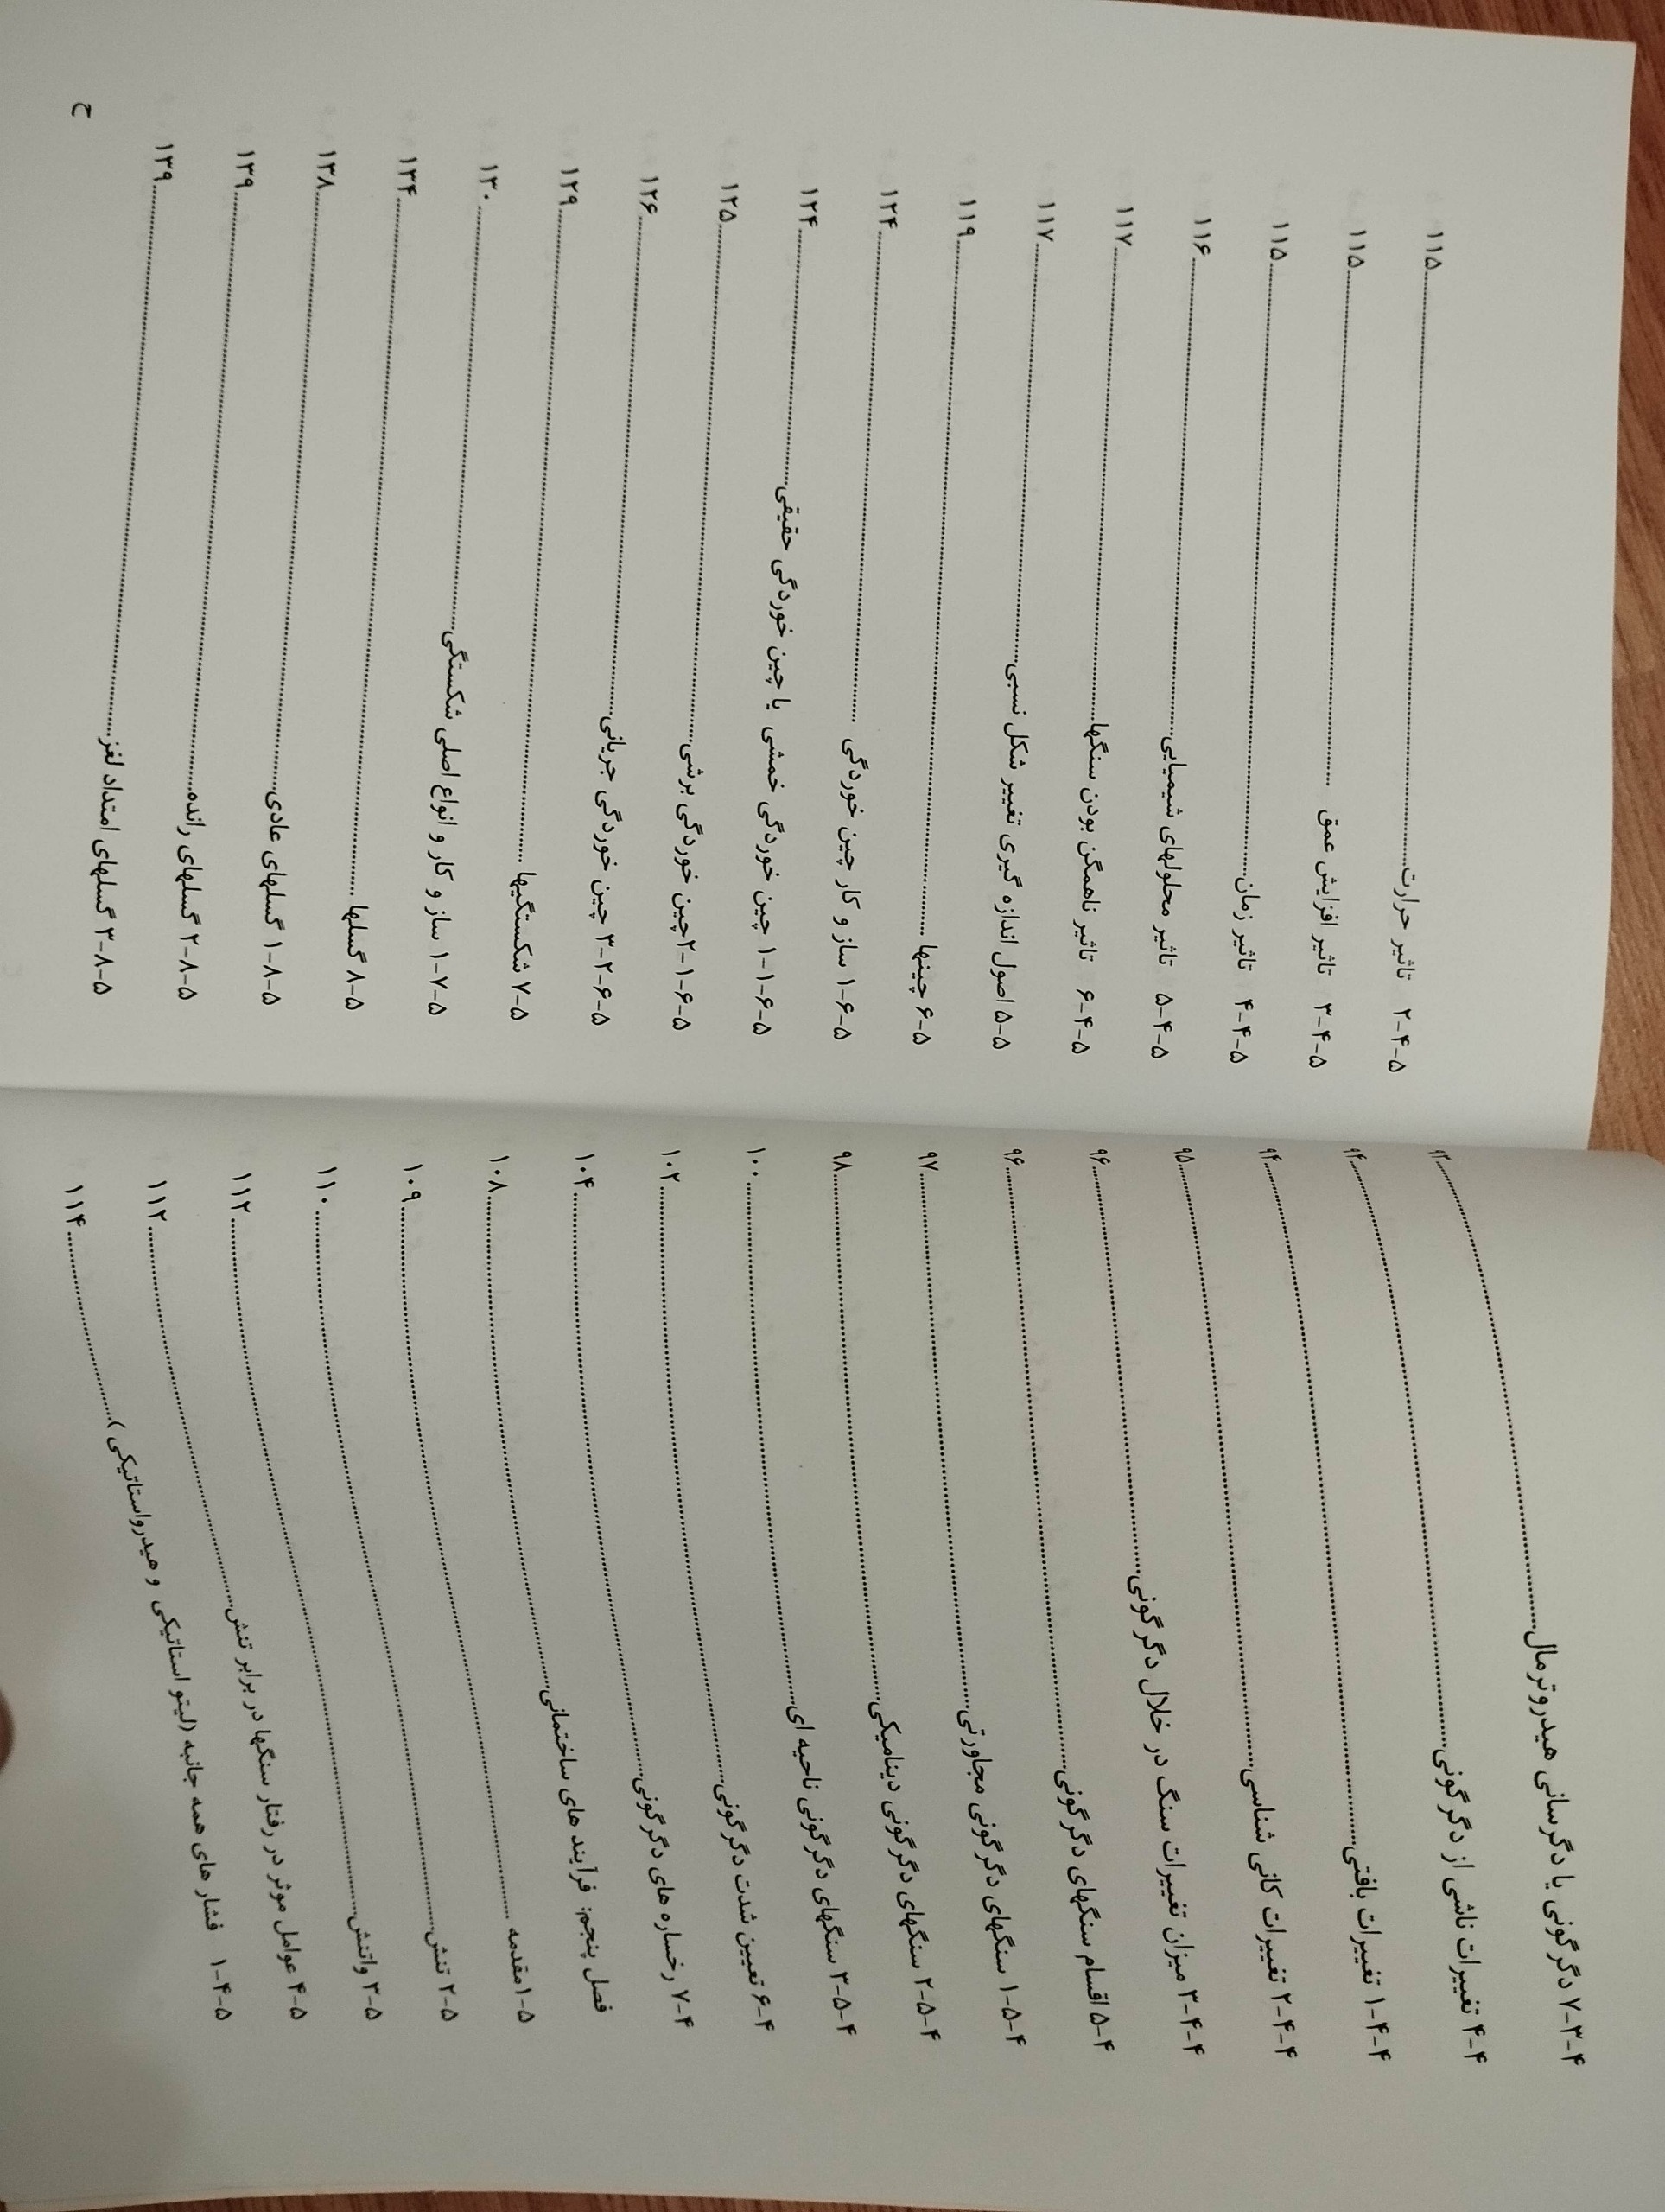 ۴-۳-۷ دگرگونی یا دگرسانی هیدروترمال........۹۳
۴-۴ تغییرات ناشی از دگرگونی........۹۴
۴-۴-۱ تغییرات بافتی........۹۴
۴-۴-۲ تغییرات کانی شناسی........۹۵
۴-۴-۳ میزان تغییرات سنگ در خلال دگرگونی........۹۶
۴-۵ اقسام سنگهای دگرگونی........۹۶
۴-۵-۱ سنگهای دگرگونی مجاورتی........۹۷
۴-۵-۲ سنگهای دگرگونی دینامیکی........۹۸
۴-۵-۳ سنگهای دگرگونی ناحیه ای........۱۰۰
۴-۶ تعیین شدت دگرگونی........۱۰۲
۴-۷ رخساره های دگرگونی........۱۰۴
فصل پنجم: فرآیند های ساختمانی........۱۰۸
۵-۱مقدمه ........۱۰۹
۵-۲ تنش........۱۱۰
۵-۳ واتنش........۱۱۲
۵-۴ عوامل موثر در رفتار سنگها در برابر تنش........۱۱۲
۵-۴-۱ فشار های همه جانبه (لیتو استاتیکی و هیدرواستاتیکی)........۱۱۴
۵-۴-۲ تاثیر حرارت........۱۱۵
۵-۴-۳ تاثیر افزایش عمق ........۱۱۵
۵-۴-۴ تاثیر زمان........۱۱۵
۵-۴-۵ تاثیر محلولهای شیمیایی........۱۱۶
۵-۴-۶ تاثیر ناهمگن بودن سنگها........۱۱۷
۵-۵ اصول اندازه گیری تغییر شکل نسبی........۱۱۷
۵-۶ چینها ........۱۱۹
۵-۶-۱ ساز و کار چین خوردگی ........۱۲۴
۵-۶-۱-۱ چین خوردگی خمشی یا چین خوردگی حقیقی........۱۲۴
۵-۶-۱-۲چین خوردگی برشی........۱۲۵
۵-۶-۲-۳ چین خوردگی جریانی........۱۲۶
۵-۷ شکستگیها ........۱۲۹
۵-۷-۱ ساز و کار و انواع اصلی شکستگی........۱۳۰
۵-۸ گسلها........۱۳۴
۵-۸-۱ گسلهای عادی........۱۳۸
۵-۸-۲ گسلهای رانده........۱۳۹
۵-۸-۳ گسلهای امتداد لغز........۱۳۹
ح